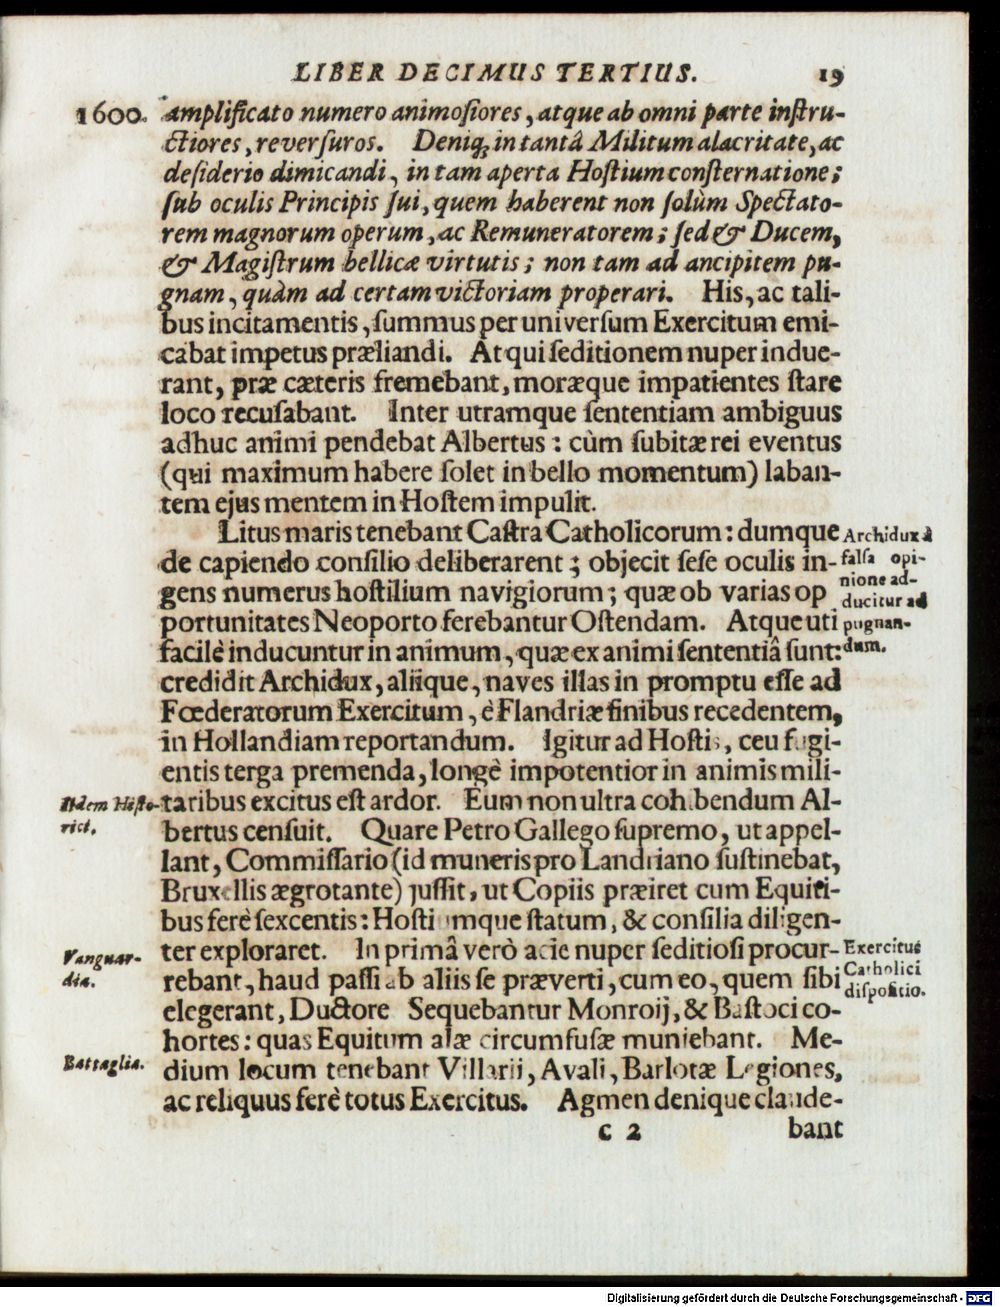 LIBER DECIMUS TERTIUS. 19
1600. amplificato numero animoſiores, atque ab omni parte inſtru-
ctiores, reverſuros. Deniq; in tantâ Militum alacritate, ac
deſiderio dimicandi, in tam aperta Hoſtium conſternatione;
ſub oculis Principis ſui, quem haberent non ſolùm Spectato-
rem magnorum operum, ac Remuneratorem; ſed & Ducem,
& Magiſtrum bellicæ virtutis; non tam ad ancipitem pu-
gnam, quàm ad certam victoriam properari. His, ac tali-
bus incitamentis, ſummus per univerſum Exercitum emi-
cabat impetus præliandi. At qui ſeditionem nuper indue-
rant, præ cæteris fremebant, moræque impatientes ſtare
loco recuſabant. Inter utramque ſententiam ambiguus
adhuc animi pendebat Albertus: cùm ſubitæ rei eventus
(qui maximum habere ſolet in bello momentum) laban-
tem ejus mentem in Hoſtem impulit.
Litus maris tenebant Caſtra Catholicorum: dumque
de capiendo conſilio deliberarent; objecit ſeſe oculis in-
gens numerus hoſtilium navigiorum; quæ ob varias op
portunitates Neoporto ferebantur Oſtendam. Atque uti
facilè inducuntur in animum, quæ ex animi ſententiâ ſunt:
Archidux à
falſa opi-
nione ad-
ducitur ad
pugnan-
dum.
credidit Archidux, aliique, naves illas in promptu eſſe ad
Fœderatorum Exercitum, è Flandriæ finibus recedentem,
in Hollandiam reportandum. Igitur ad Hoſtis, ceu fugi-
entis terga premenda, longè impotentior in animis mili-
taribus excitus eſt ardor. Eum non ultra cohibendum Al-
bertus cenſuit. Quare Petro Gallego ſupremo, ut appel-
Iidem Hiſto-
rici.
lant, Commiſſario (id muneris pro Landriano ſuſtinebat,
Bruxellis ægrotante) juſſit, ut Copiis præiret cum Equiti-
bus ferè ſexcentis: Hoſtiumque ſtatum, & conſilia diligen-
ter exploraret. In primâ verò acie nuper ſeditioſi procur-
rebant, haud paſſi ab aliis ſe præverti, cum eo, quem ſibi
Exercitus
Catholici
diſpoſitio.
Vanguar-
dia.
elegerant, Ductore Sequebantur Monroij, & Baſtoci co-
hortes: quas Equitum alæ circumfuſæ muniebant. Me-
dium locum tenebant Villarii, Avali, Barlotæ Legiones,
Battaglia.
ac reliquus ferè totus Exercitus. Agmen denique claude-
c 2 bant
Digitalisierung gefördert durch die Deutsche Forschungsgemeinschaft - DFG